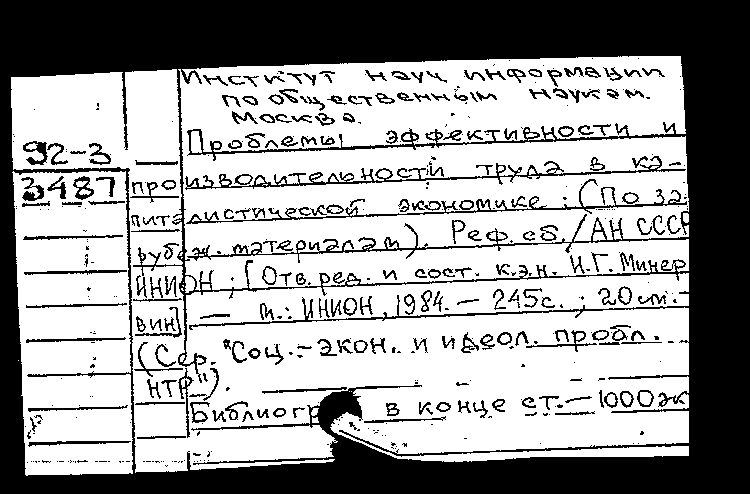 Институт науч. информации
по общественным наукам.
Москва.
Проблемы эффективности и
92-3
3487
производительности труда в ка-
питалистической экономике: (По за-
рубеж. материалам). Реф. сб. / АН СССР
ИНИОН; [Отв. ред. и сост. к.э.н. И.Г. Минер
вин] — М.: ИНИОН, 1984. — 245с.; 20см. -
(Сер. "Соц.-экон. и идеол. пробл.
НТР").
Библиогр в конце ст. — 1000эк